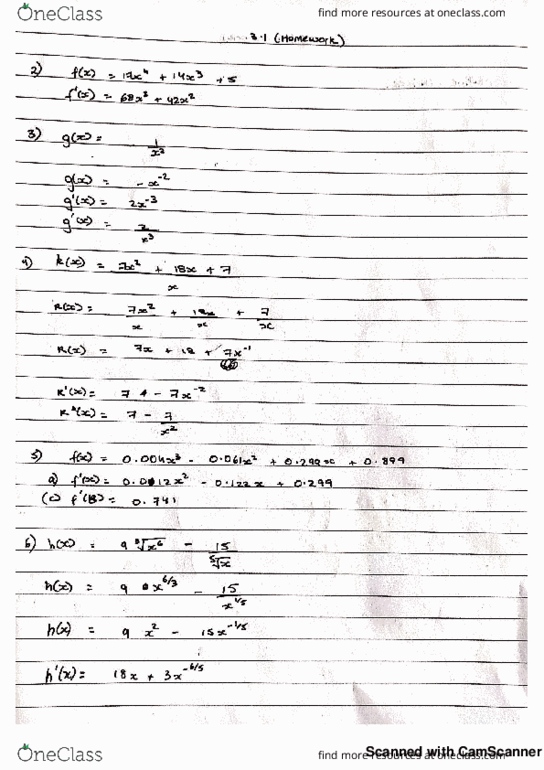 OneClass
find more resources at oneclass.com
3.1 (Homework)
2) f(x) = 17x⁴ + 14x³ + 5
f'(x) = 68x³ + 42x²
3) g(x) = 1/x²
g(x) = -x⁻²
g'(x) = 2x⁻³
g'(x) = 2/x³
4) k(x) = 7x² + 18x + 7 / x
k(x) = 7x²/x + 18x/x + 7/x
k(x) = 7x + 18 + 7x⁻¹
k'(x) = 7 + - 7x⁻²
k'(x) = 7 - 7/x²
5) f(x) = 0.004x³ - 0.061x² + 0.299x + 0.899
a) f'(x) = 0.012x² - 0.122x + 0.299
(c) f'(13) = 0.741
6) h(x) = 9 ³√x⁶ - 15/⁵√x
h(x) = 9 x^6/3 - 15/x^1/5
h(x) = 9 x² - 15x^-1/5
h'(x) = 18x + 3x^-6/5
OneClass
find more resources at oneclass.com
Scanned with CamScanner